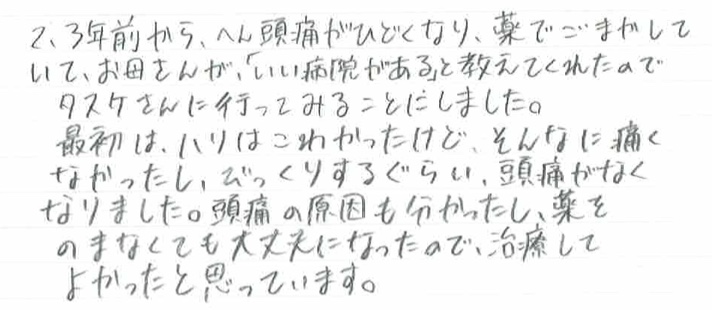 2、3年前から、へん頭痛がひどくなり、薬でごまかして
いて、お母さんが、「いい病院がある」と教えてくれたので
タスケさんに行ってみることにしました。
最初は、ハリはこわかったけど、そんなに痛く
なかったし、びっくりするぐらい、頭痛がなく
なりました。頭痛の原因も分かったし、薬を
のまなくても大丈夫になったので、治療して
よかったと思っています。